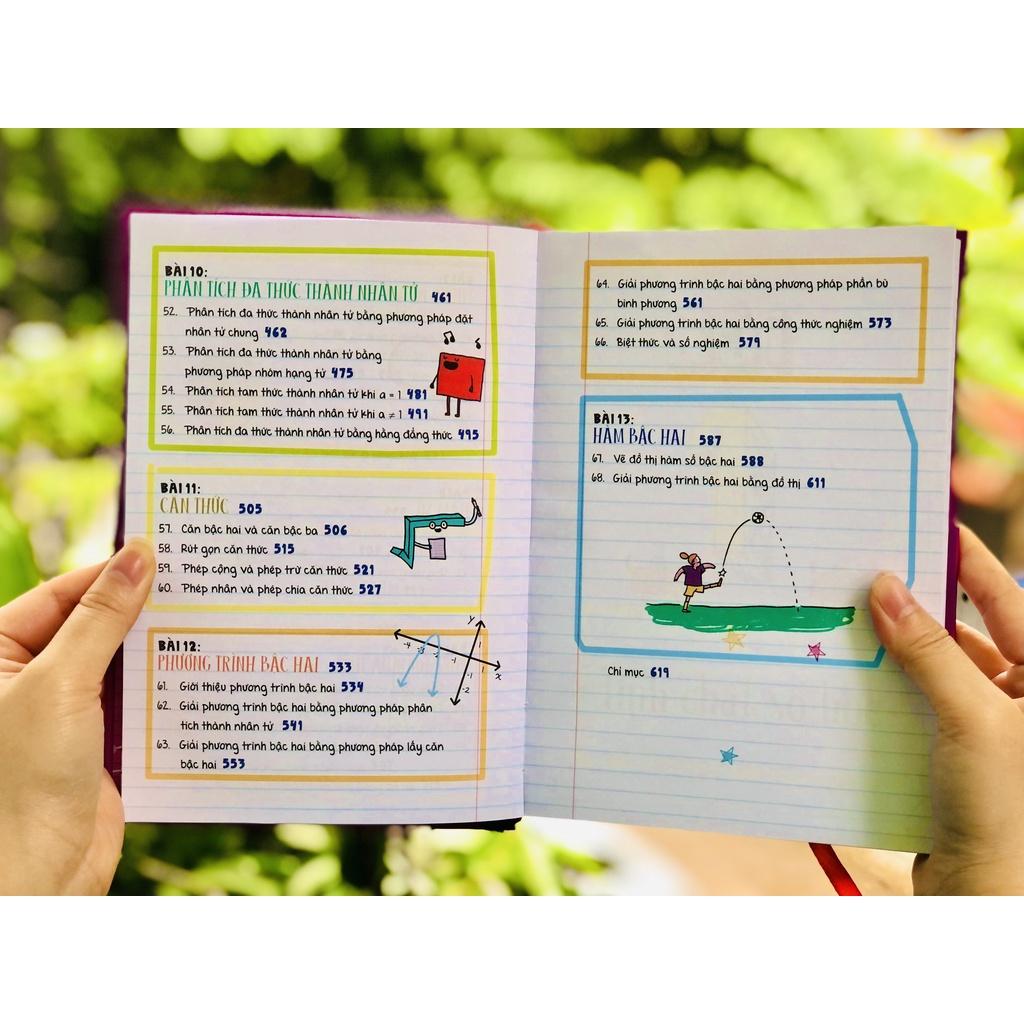 BÀI 10:
PHÂN TÍCH ĐA THỨC THÀNH NHÂN TỬ 461
52. Phân tích đa thức thành nhân tử bằng phương pháp đặt
nhân tử chung 462
53. Phân tích đa thức thành nhân tử bằng
phương pháp nhóm hạng tử 475
54. Phân tích tam thức thành nhân tử khi a = 1 481
55. Phân tích tam thức thành nhân tử khi a ≠ 1 491
56. Phân tích đa thức thành nhân tử bằng hằng đẳng thức 495
BÀI 11:
CĂN THỨC 505
57. Căn bậc hai và căn bậc ba 506
58. Rút gọn căn thức 515
59. Phép cộng và phép trừ căn thức 521
60. Phép nhân và phép chia căn thức 527
BÀI 12:
PHƯƠNG TRÌNH BẬC HAI 533
61. Giới thiệu phương trình bậc hai 534
62. Giải phương trình bậc hai bằng phương pháp phân
tích thành nhân tử 541
63. Giải phương trình bậc hai bằng phương pháp lấy căn
bậc hai 553
y
-4 -3 -2 -1 1
x
-1
-2
64. Giải phương trình bậc hai bằng phương pháp phần bù
bình phương 561
65. Giải phương trình bậc hai bằng công thức nghiệm 573
66. Biệt thức và số nghiệm 579
BÀI 13:
HÀM BẬC HAI 587
67. Vẽ đồ thị hàm số bậc hai 588
68. Giải phương trình bậc hai bằng đồ thị 611
Chỉ mục 619